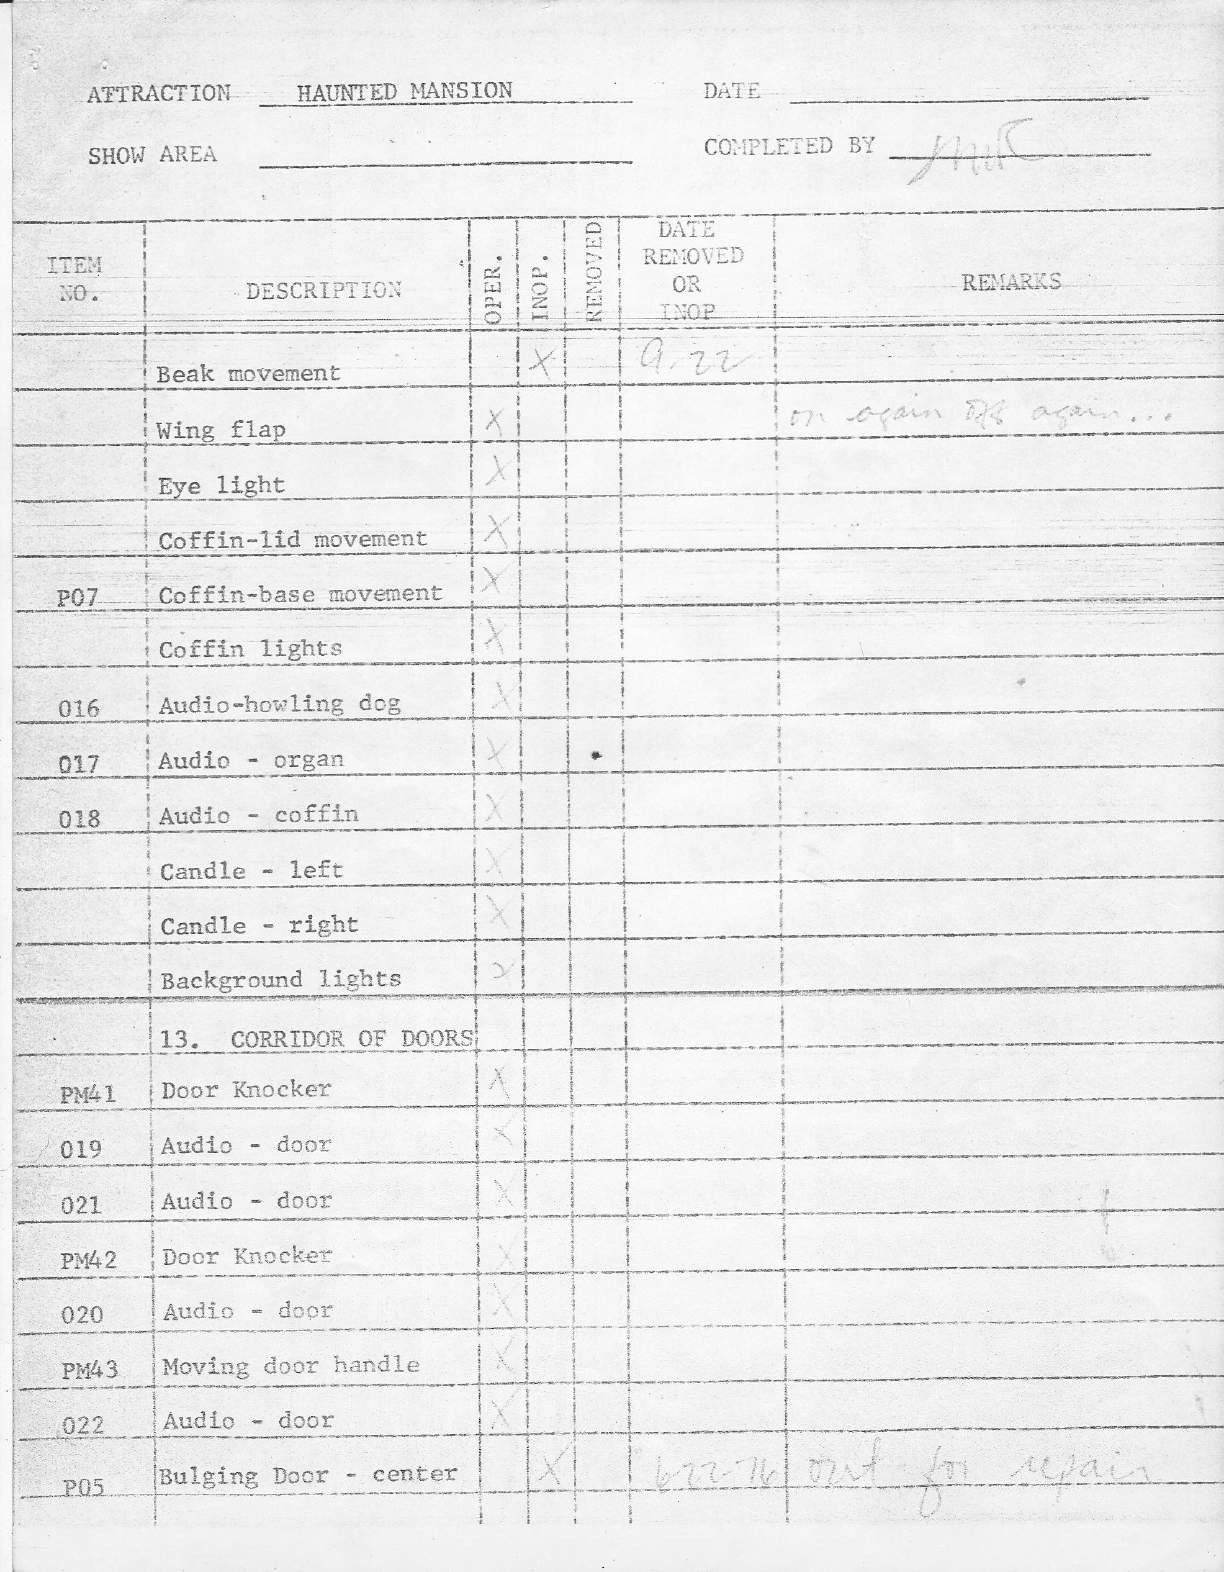 ATTRACTION HAUNTED MANSION DATE
SHOW AREA COMPLETED BY
ITEM NO. DESCRIPTION OPER. INOP. REMOVED DATE REMOVED OR INOP REMARKS
Beak movement X 9-22
Wing flap X on again off again...
Eye light X
Coffin-lid movement X
P07 Coffin-base movement X
Coffin lights X
016 Audio-howling dog X
017 Audio - organ X
018 Audio - coffin X
Candle - left X
Candle - right X
Background lights X
13. CORRIDOR OF DOORS
PM41 Door Knocker X
019 Audio - door X
021 Audio - door X
PM42 Door Knocker X
020 Audio - door X
PM43 Moving door handle X
022 Audio - door X
P05 Bulging Door - center X 6-22-76 out for repair